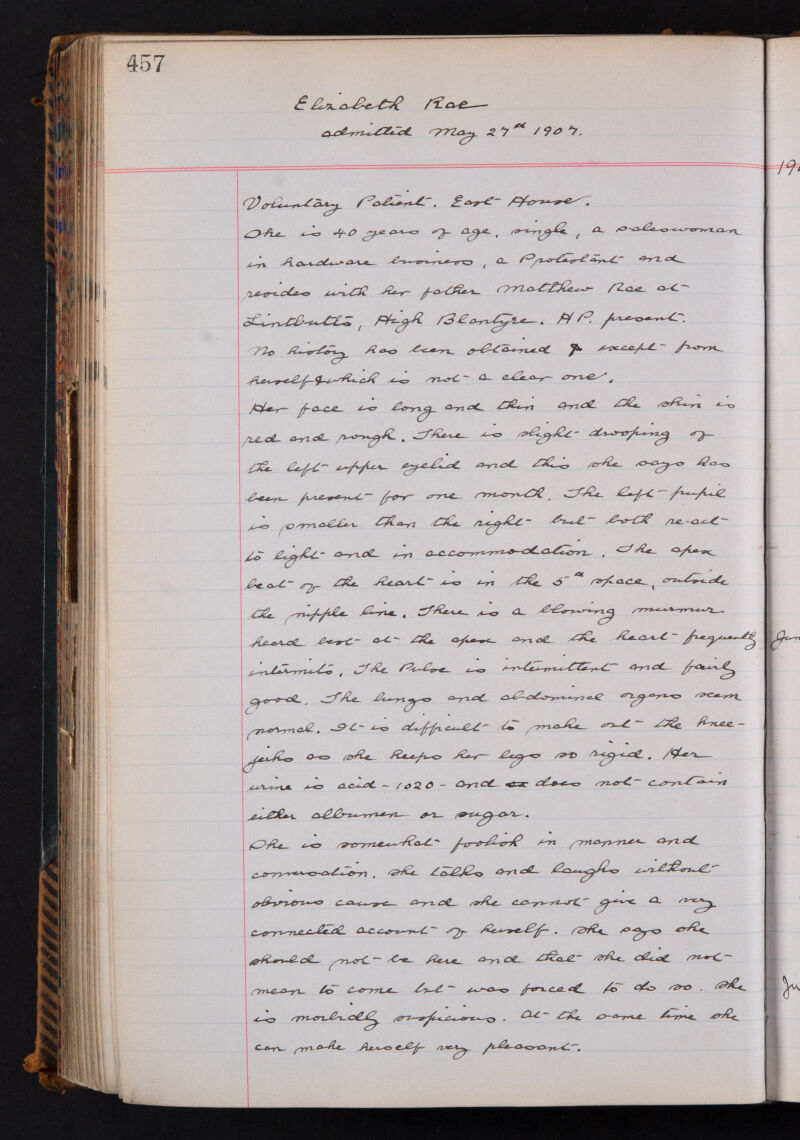 457
Elizabeth Rae
admitted May 27th 1907.
Voluntary Patient. East House.
She is 40 years of age, single, a saleswoman
in hardware business, a Protestant and
resides with her father Matthew Rae at
Lintbutts, High Blantyre. H.P. present.
No history has been obtained & except from
herself & which is not a clear one.
Her face is long and thin and the skin is
red and rough. There is slight drooping of
the left upper eyelid and this she says has
been present for one month. The left pupil
is smaller than the right but both re-act
to light and in accommodation. The apex
beat of the heart is in the 5th space, outside
the nipple line. There is a blowing murmur
heard best at the apex and the heart frequently
intermits. The Pulse is intermittent and fairly
good. The lungs and abdominal organs seem
normal. It is difficult to make out the knee-
jerks as she keeps her legs so rigid. Her
urine is acid - 1020 - and does not contain
either albumen or sugar.
She is somewhat foolish in manner and
conversation. she talks and laughs without
obvious cause and she cannot give a very
connected account of herself. She says she
should not be here and that she did not
mean to come but was forced to do so. She
is morbidly suspicious. At the same time she
can make herself very pleasant.